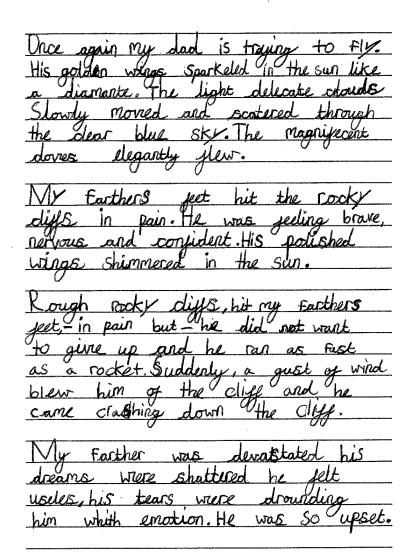 Once again my dad is trying to fly.
His golden wings sparkeled in the sun like
a diamante. The light delecate clouds
Slowly moved and scatered through
the clear blue sky. The magnifecent
doves elegantly flew.
My Farthers feet hit the rocky
cliffs in pain. He was feeling brave,
nervous and confident. His polished
wings shimmered in the sun.
Rough rocky cliffs, hit my Farthers
feet, - in pain but - he did not want
to give up and he ran as fast
as a rocket. Suddenly, a gust of wind
blew him of the cliff and he
came crashing down the cliff.
My Farther was devastated his
dreams were shattered he felt
useles, his tears were drounding
him whith emotion. He was so upset.